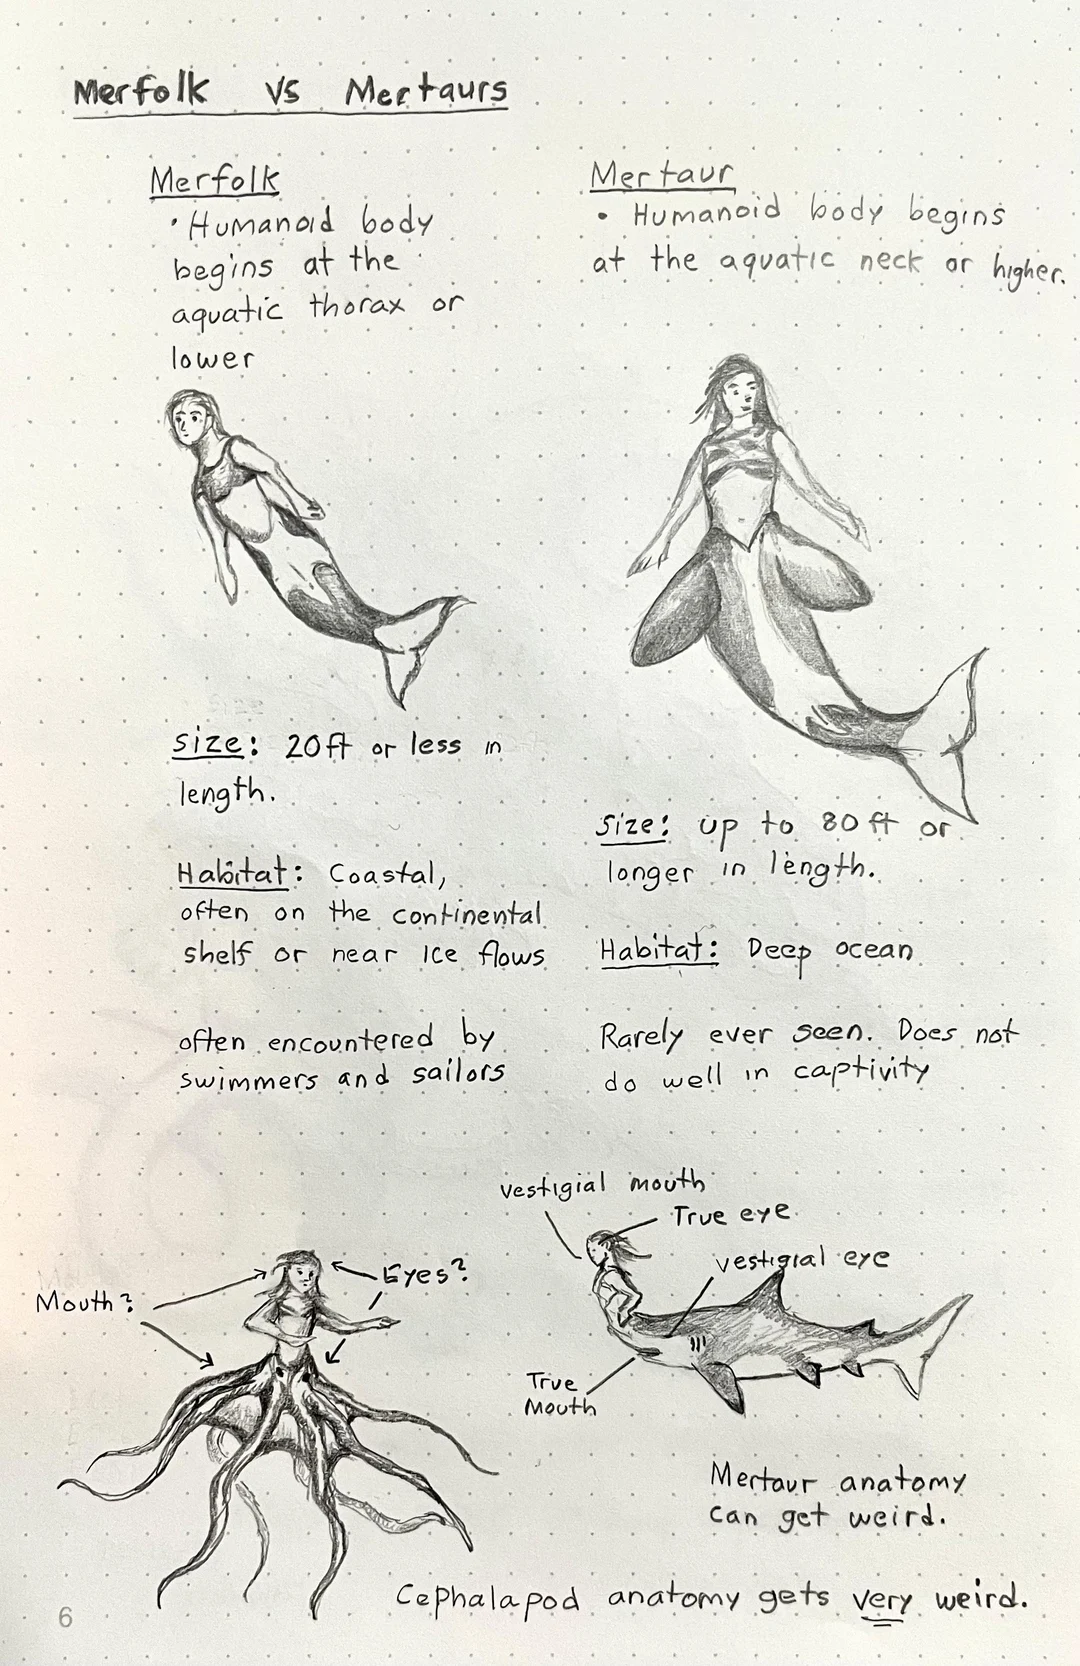 Merfolk vs Mertaurs
Merfolk
• Humanoid body
begins at the
aquatic thorax or
lower
Mertaur
• Humanoid body begins
at the aquatic neck or higher.
Size: 20ft or less in
length.
Habitat: Coastal,
often on the continental
shelf or near Ice flows
often encountered by
swimmers and sailors
Size: up to 80 ft or
longer in length.
Habitat: Deep ocean
Rarely ever seen. Does not
do well in captivity
Mouth?
Eyes?
vestigial mouth
True eye
vestigial eye
True
Mouth
Mertaur anatomy
can get weird.
Cephalapod anatomy gets very weird.
6